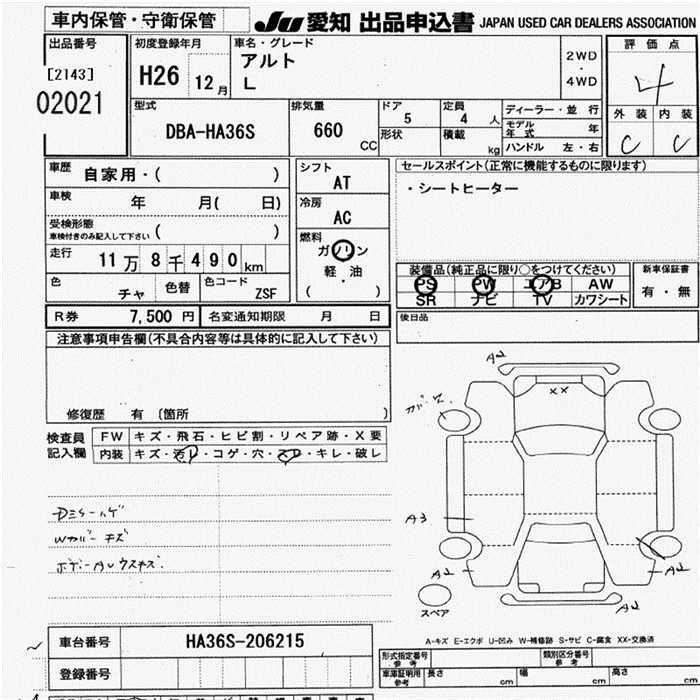 車内保管・守衛保管
JU 愛知 出品申込書 JAPAN USED CAR DEALERS ASSOCIATION
出品番号
[2143]
02021
初度登録年月
H26 12月
車名・グレード
アルト
L
2WD
・
4WD
評価点
4
外装 内装
C C
型式
DBA-HA36S
排気量
660 CC
ドア
5
形状
定員
4 人
積載
kg
ディーラー・並行
モデル年式 年
ハンドル 左・右
車歴
自家用・( )
車検
年 月( 日)
受検形態
車検付きのみ記入して下さい ( )
走行
11万8千490km
色
チャ
色替
色コード
ZSF
シフト
AT
冷房
AC
燃料
ガソリン
軽・油
( ・ )
セールスポイント(正常に機能するものに限ります)
・シートヒーター
装備品(純正品に限り○をつけてください)
PS PW エアB AW
SR ナビ TV カワシート
新車保証書
有・無
後日品
R券 7,500 円
名変通知期限 月 日
注意事項申告欄(不具合内容等は具体的に記入して下さい)
修復歴 有 〔箇所 〕
検査員
記入欄
FW キズ・飛石・ヒビ割・リペア跡・X要
内装 キズ・汚レ・コゲ・穴・スレ・キレ・破レ
Wカバーキズ
ボデーAUウスキズ.
A2
XX
A3
A2
A2
A2
スペア
A-キズ E-エクボ U-凹み W-補修跡 S-サビ C-腐食 XX-交換済
車台番号
HA36S-206215
登録番号
形式指定番号
参考
類別区分番号
参考
車庫証明用
参考
長さ cm
幅 cm
高さ cm